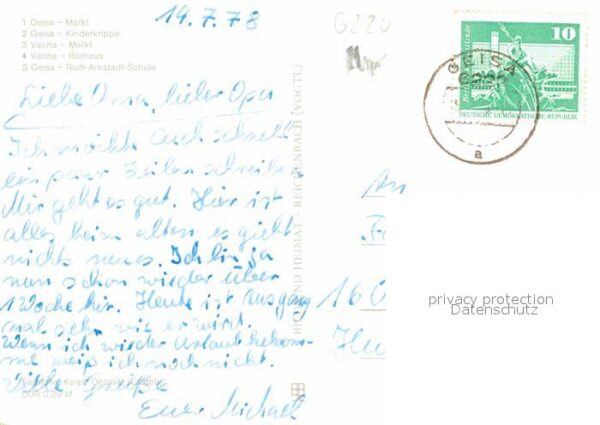 14.7.78
6220
1 Geisa – Markt
2 Geisa – Kinderkrippe
3 Vacha – Markt
4 Vacha – Rathaus
5 Geisa – Rudi-Arnstadt-Schule
Liebe Oma, lieber Opa
Ich möchte Euch schnell
ein paar Zeilen schreiben
Mir geht es gut. Hier ist
alles beim alten es giebt
nichts neues. Ich bin ja
nun schon wieder über
1 Woche hir. Heute ist Ausgang
mal sehn wie er wird.
Wenn ich wieder Urlaub bekom-
me weiß ich noch nicht.
Viele Grüße
Euer Michael
DDR 0,20 M
BILD UND HEIMAT · REICHENBACH (VOGTL)
10
DEUTSCHE DEMOKRATISCHE REPUBLIK
GEISA
a
An
privacy protection
Datenschutz